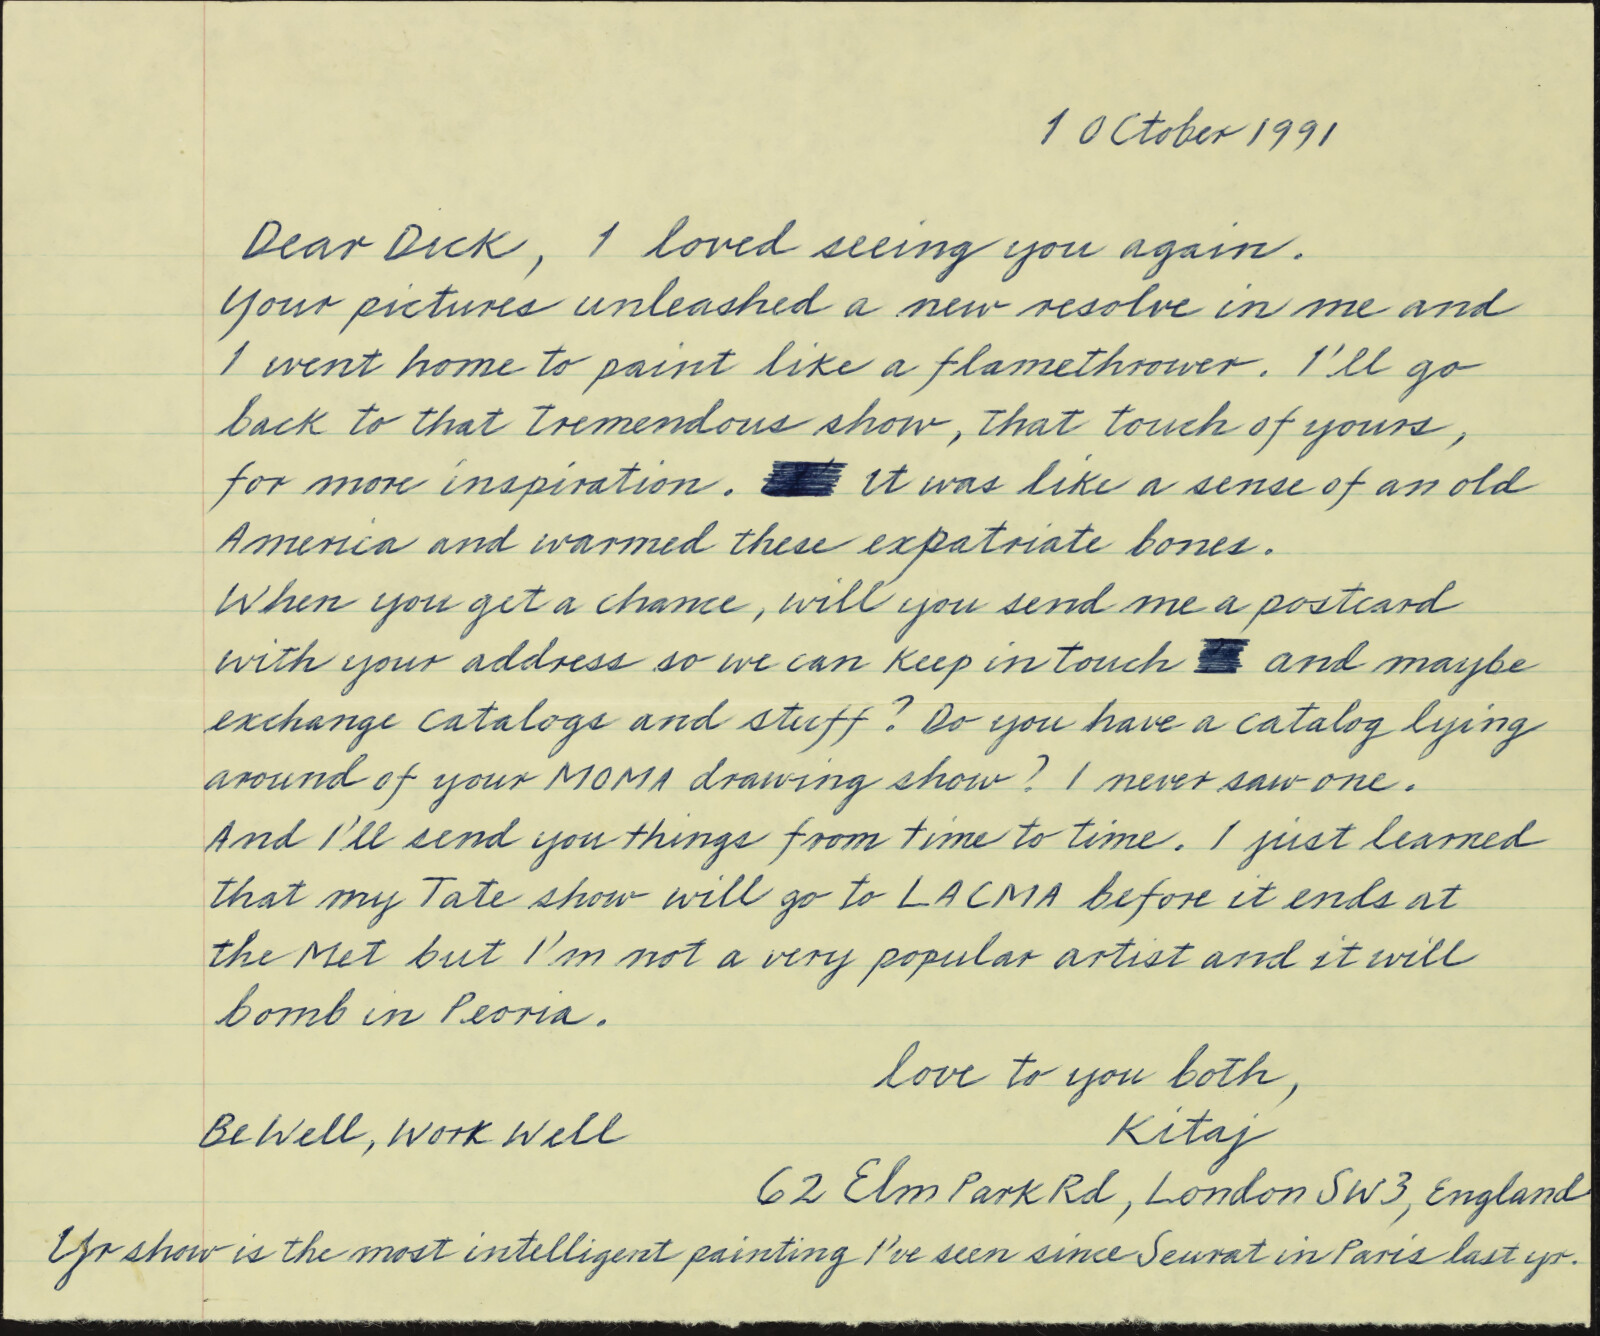 1 October 1991
Dear Dick, I loved seeing you again.
Your pictures unleashed a new resolve in me and
I went home to paint like a flamethrower. I'll go
back to that tremendous show, that touch of yours,
for more inspiration. It was like a sense of an old
America and warmed these expatriate bones.
When you get a chance, will you send me a postcard
with your address so we can keep in touch and maybe
exchange catalogs and stuff? Do you have a catalog lying
around of your MOMA drawing show? I never saw one.
And I'll send you things from time to time. I just learned
that my Tate show will go to LACMA before it ends at
the Met but I'm not a very popular artist and it will
bomb in Peoria.
love to you both,
Be Well, Work Well
Kitaj
62 Elm Park Rd, London SW3, England
Yr show is the most intelligent painting I've seen since Seurat in Paris last yr.